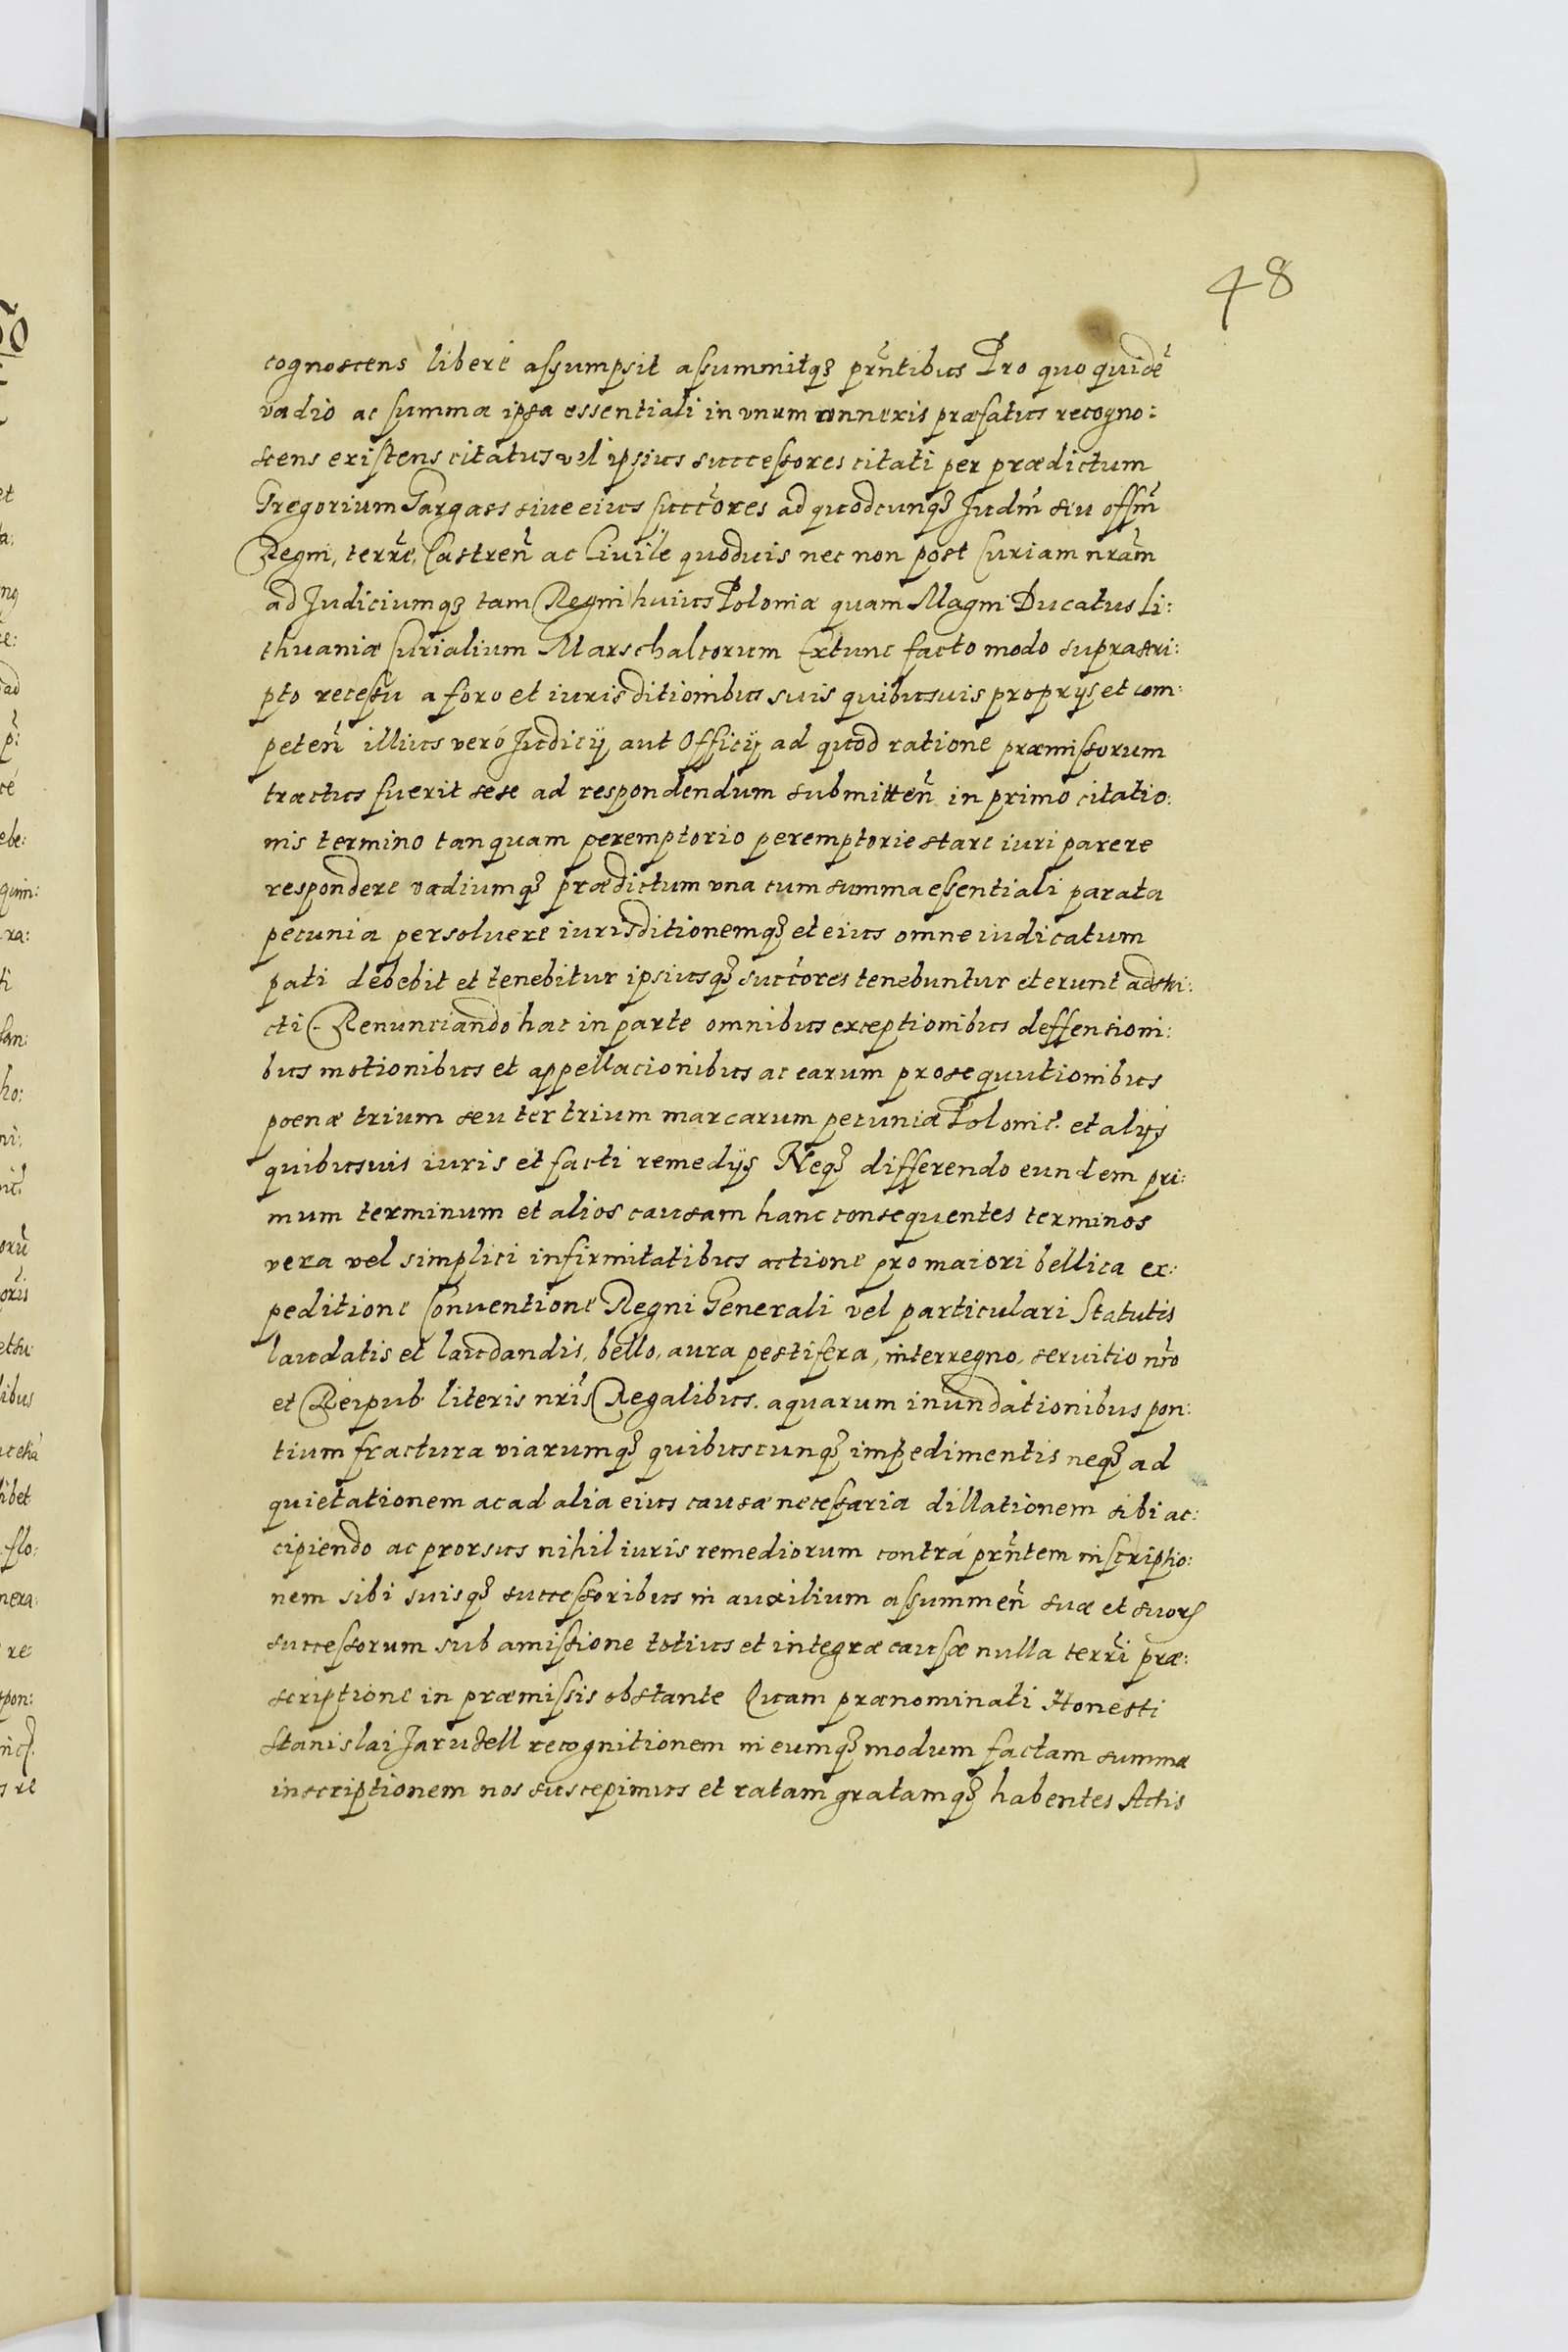 48
cognoscens liberè assumpsit assummitqꝫ pr̃ntibus Pro quo quidẽ
vadio ac summa ipsa essentiali in vnum connexis præfatus recogno:
scens existens citatus vel ipsius successores citati per prædictum
Gregorium Gargass siue eius succ̃ores ad quodcunqꝫ Judm̃ seu offm̃
Regni, terr̃e, Castren̄ ac Ciuile quoduis nec non post Curiam nr̃am
ad Judiciumqꝫ tam Regni huius Poloniæ quam Magni Ducatus Li:
thuaniæ Curialium Marschalcorum Extunc facto modo suprascri:
pto recessu a foro et iurisditionibus suis quibusuis proprijs et com:
peten̄ illius verò Judicij aut Officij ad quod ratione præmissorum
tractus fuerit sese ad respondendum submitten̄ in primo citatio:
nis termino tanquam peremptorio peremptorie stare iuri parere
respondere vadiumqꝫ prædictum vna cum summa essentiali parata
pecunia persoluere iurisditionemqꝫ et eius omne iudicatum
pati debebit et tenebitur ipsiusqꝫ succ̃ores tenebuntur et erunt adstri:
cti Renunciando hac in parte omnibus exceptionibus deffensioni:
bus motionibus et appellacionibus ac earum prosequutionibus
poenæ trium seu ter trium marcarum pecuniæ Polonic. et alijs
quibusuis iuris et facti remedijs Neqꝫ differendo eundem pri:
mum terminum et alios causam hanc consequentes terminos
vera vel simplici infirmitatibus actione pro maiori bellica ex:
peditione Conuentione Regni Generali vel particulari Statutis
laudatis et laudandis, bello, aura pestifera, interregno, seruitio nr̃o
et Reipub. literis nr̃is Regalibus. aquarum inundationibus pon:
tium fractura viarumqꝫ quibuscunqꝫ impedimentis neqꝫ ad
quietationem ac ad alia eius causæ necessaria dillationem sibi ac:
cipiendo ac prorsus nihil iuris remediorum contrà pr̃ntem inscriptio:
nem sibi suisqꝫ successoribus in auxilium assummen̄ suæ et suorꝝ
successorum sub amissione totius et integræ causæ nulla terr̃i præ:
scriptione in præmissis obstante Quam prænominati Honesti
Stanislai Jarudell recognitionem in eumqꝫ modum factam summæ
inscriptionem nos suscepimus et ratam gratamqꝫ habentes Actis